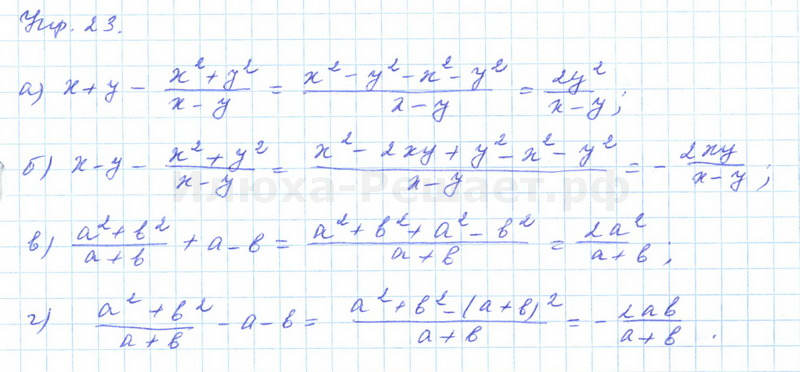 Упр. 23.
а) x+y - (x²+y²)/(x-y) = (x²-y²-x²-y²)/(x-y) = 2y²/(x-y);
б) x-y - (x²+y²)/(x-y) = (x²-2xy+y²-x²-y²)/(x-y) = - 2xy/(x-y);
Илюха-Решает.рф
в) (a²+b²)/(a+b) + a-b = (a²+b²+a²-b²)/(a+b) = 2a²/(a+b);
г) (a²+b²)/(a+b) - a-b = (a²+b²-(a+b)²)/(a+b) = - 2ab/(a+b).